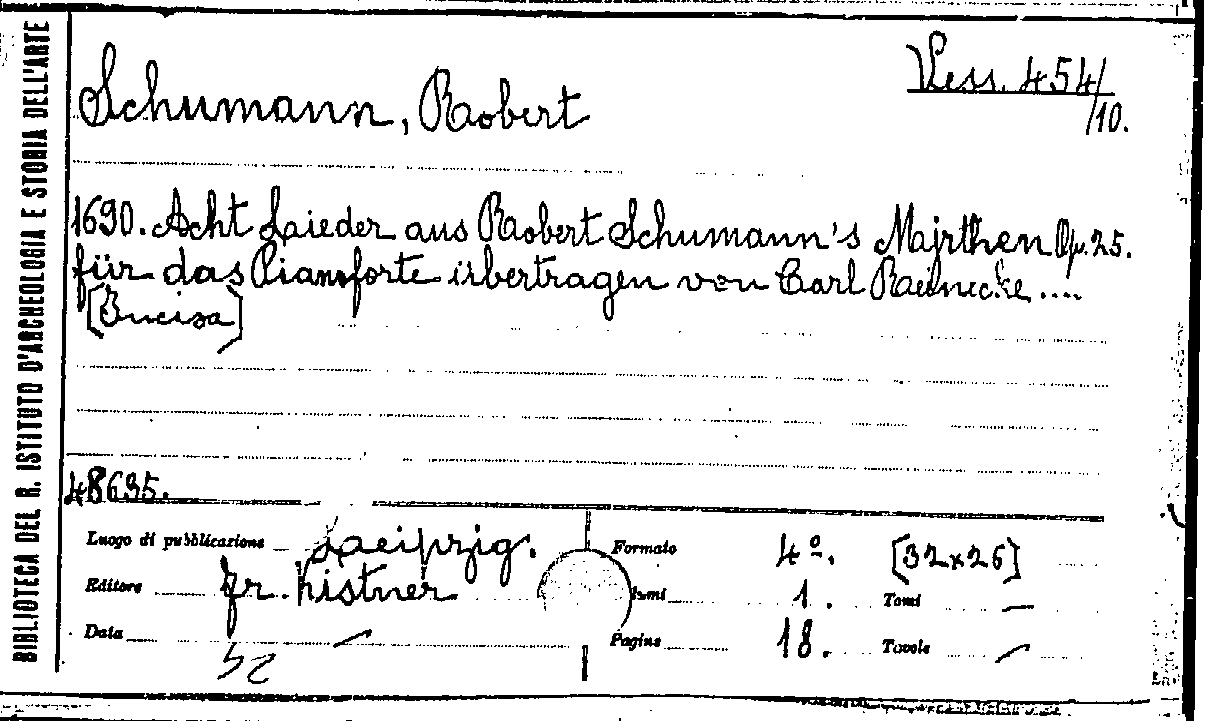 BIBLIOTECA DEL R. ISTITUTO D'ARCHEOLOGIA E STORIA DELL'ARTE
Vess. 454/
/10.
Schumann, Robert
1690. Acht Lieder aus Robert Schumann's Myrthen Op. 25.
für das Pianoforte übertragen von Carl Reinecke....
[Incisa]
48695.
Luogo di pubblicazione Leipzig.
Editore Fr. Kistner
Data —
Formato 4º. [32x26]
lumi 1. Tomi —
Pagine 18. Tavole —